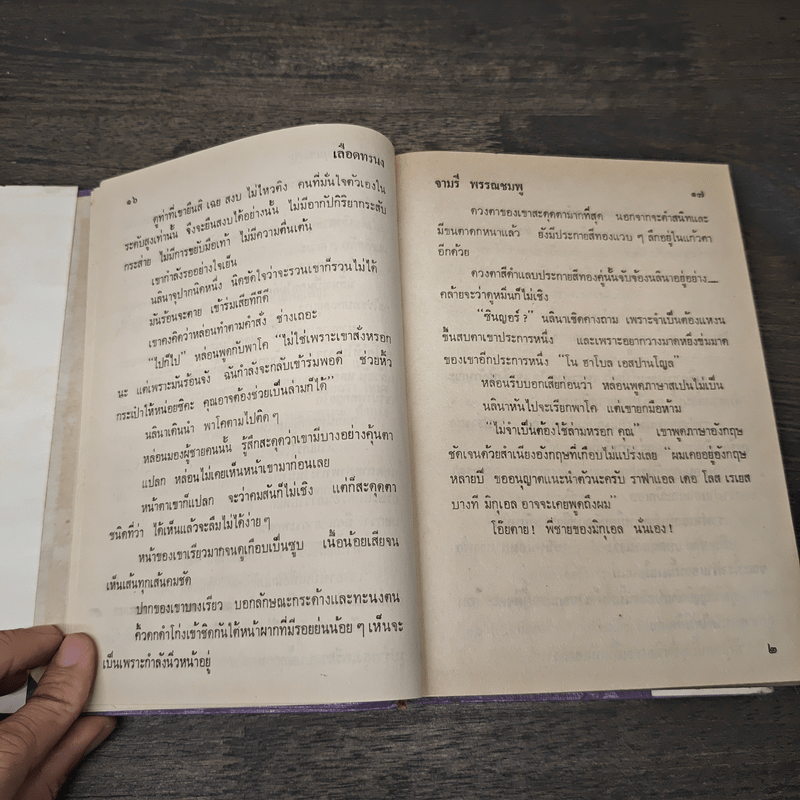 ๑๖
เลือดทรนง
ดูท่าที่เขายืนสิ เฉย สงบ ไม่ไหวติง คนที่มั่นใจตัวเองใน
ระดับสูงเท่านั้น จึงจะยืนสงบได้อย่างนั้น ไม่มีอากัปกิริยากระสับ
กระส่าย ไม่มีการขยับมือเท้า ไม่มีความตื่นเต้น
เขากำลังรออย่างใจเย็น
นลินาจุปากนิดหนึ่ง นึกขัดใจว่าจะรวนเขาก็รวนไม่ได้
มันร้อนจะตาย เข้าร่มเสียทีก็ดี
เขาคงคิดว่าหล่อนทำตามคำสั่ง ช่างเถอะ
"ไปก็ไป" หล่อนพูดกับพาโค "ไม่ใช่เพราะเขาสั่งหรอก
นะ แต่เพราะมันร้อนจัง ฉันกำลังจะกลับเข้าร่มพอดี ช่วยหิ้ว
กระเป๋าให้หน่อยซิคะ คุณอาจต้องช่วยเป็นล่ามก็ได้"
นลินาเดินนำ พาโคตามไปติด ๆ
หล่อนมองผู้ชายคนนั้น รู้สึกสะดุดว่าเขามีบางอย่างคุ้นตา
แปลก หล่อนไม่เคยเห็นหน้าเขามาก่อนเลย
หน้าตาเขาก็แปลก จะว่าคมสันก็ไม่เชิง แต่ก็สะดุดตา
ชนิดที่ว่า ได้เห็นแล้วจะลืมไม่ได้ง่าย ๆ
หน้าของเขาเรียวมากจนดูเกือบเป็นซูบ เนื้อน้อยเสียจน
เห็นเส้นทุกเส้นคมชัด
ปากของเขาบางเรียว บอกลักษณะกระด้างและทะนงตน
คิ้วดกดำโก่งเข้าชิดกันใต้หน้าผากที่มีรอยย่นน้อย ๆ เห็นจะ
เป็นเพราะกำลังนิ่วหน้าอยู่
จามรี พรรณชมพู
๑๗
ดวงตาของเขาสะดุดตามากที่สุด นอกจากจะดำสนิทและ
มีขนตาดกหนาแล้ว ยังมีประกายสีทองแวบ ๆ ลึกอยู่ในแก้วตา
อีกด้วย
ดวงตาสีดำแลบประกายสีทองคู่นั้นจับจ้องนลินาอยู่อย่าง—
คล้ายจะว่าดูหมิ่นก็ไม่เชิง
"ซินญอร์ ?" นลินาเชิดคางถาม เพราะจำเป็นต้องแหงน
ขึ้นสบตาเขาประการหนึ่ง และเพราะอยากวางมาดหยิ่งข่มมาด
ของเขาอีกประการหนึ่ง "โน ฮาโบล เอสปานโญล"
หล่อนรีบบอกเสียก่อนว่า หล่อนพูดภาษาสเปนไม่เป็น
นลินาหันไปจะเรียกพาโค แต่เขายกมือห้าม
"ไม่จำเป็นต้องใช้ล่ามหรอก คุณ" เขาพูดภาษาอังกฤษ
ชัดเจนด้วยสำเนียงอังกฤษที่เกือบไม่แปร่งเลย "ผมเคยอยู่อังกฤษ
หลายปี ขออนุญาตแนะนำตัวนะครับ ราฟาแอล เดอ โลส เรเยส
บางที มิกุเอล อาจจะเคยพูดถึงผม"
โอ๊ยตาย ! พี่ชายของมิกุเอล นั่นเอง !
๒